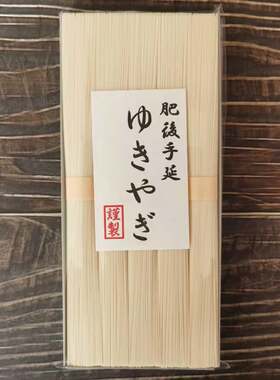 肥後手延
ゆきやぎ
謹製